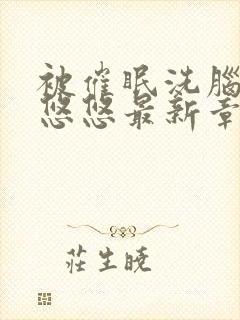 被催眠洗腦
悠悠最新章
莊生曉